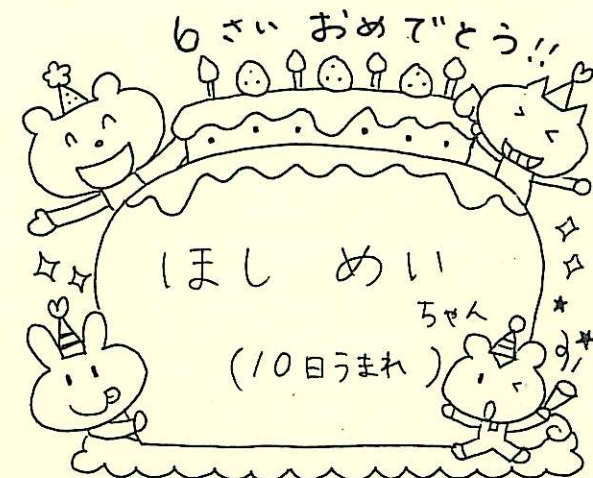 6さい おめでとう!!
ほし めい
ちゃん
(10日うまれ)